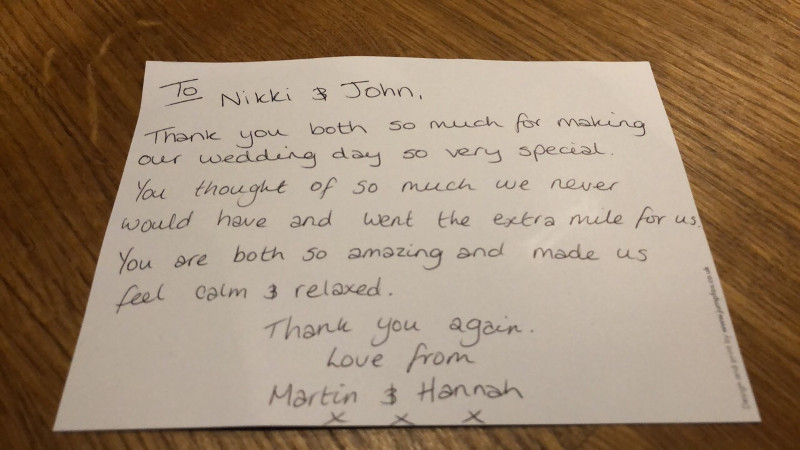 To Nikki & John,
Thank you both so much for making
our wedding day so very special.
You thought of so much we never
would have and went the extra mile for us.
You are both so amazing and made us
feel calm & relaxed.
Thank you again.
Love from
Martin & Hannah
x x x
Design and print by